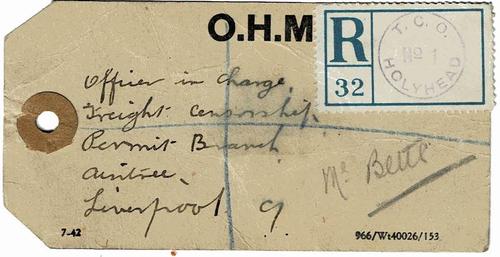 O.H.M
R
32
T.C.O.
No 1
HOLYHEAD
Officer in charge,
Freight Censorship.
Permit Branch
Aintree,
Liverpool 9
Mr Bette
7-42
966/Wt40026/153